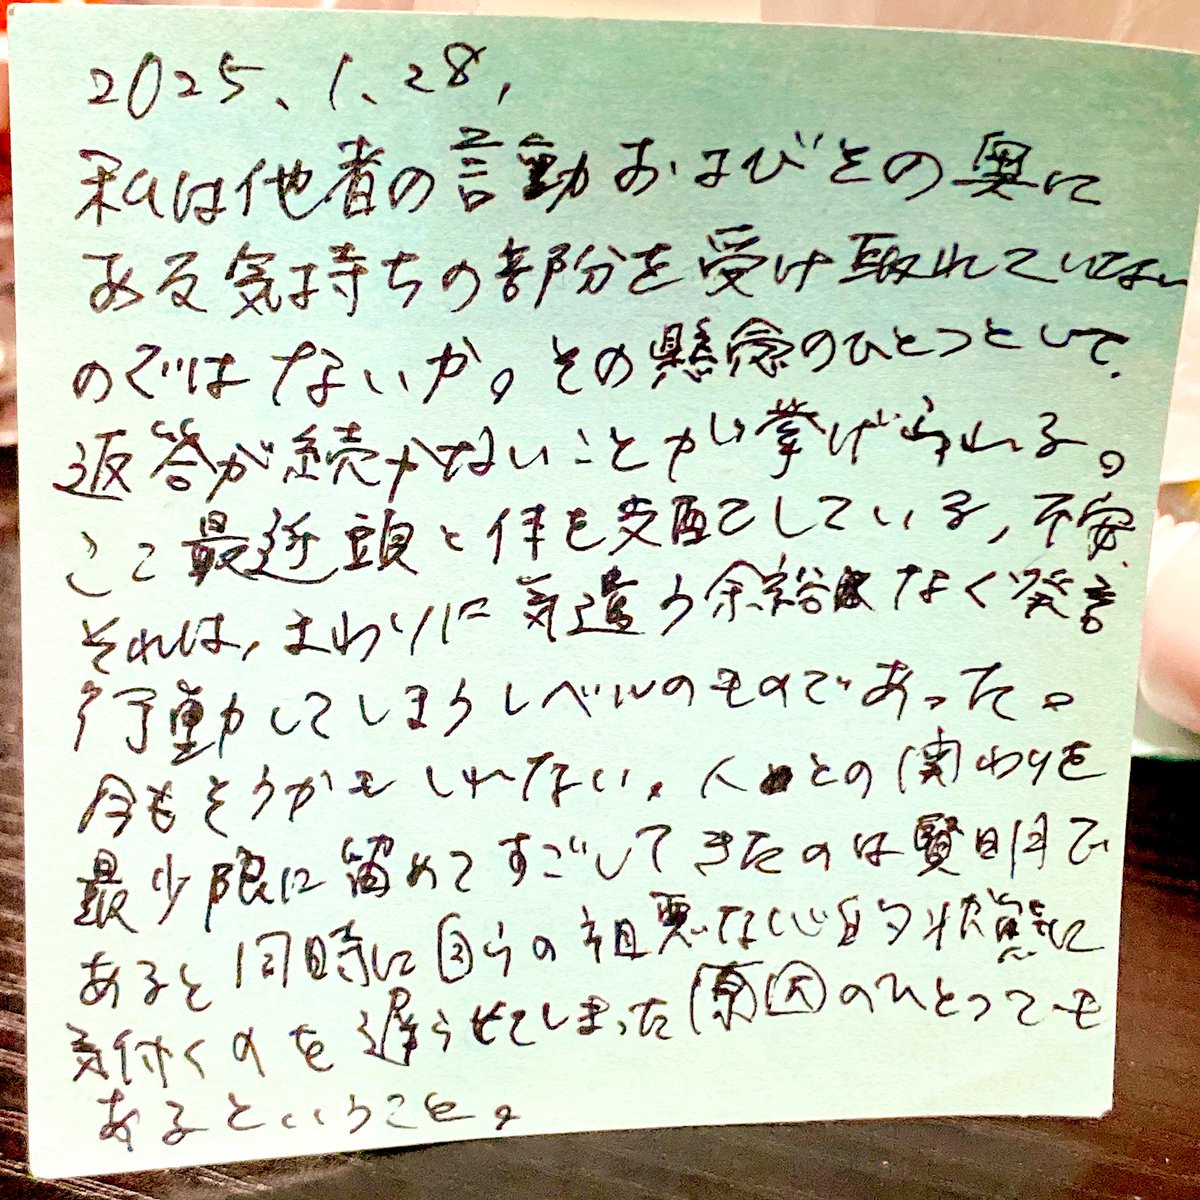 2025、1、28，
私は他者の言動およびその奥に
ある気持ちの部分を受け取れていない
のではないか。その懸念のひとつとして、
返答が続かないことが挙げられる。
ここ最近頭と体を支配している，不安、
それは，まわりに気遣う余裕はなく発言
行動してしまうレベルのものであった。
今もそうかもしれない。人との関わりを
最少限に留めてすごしてきたのは賢明で
あると同時に自らの粗悪な心的状態に
気付くのを遅らせてしまった原因のひとつでも
あるということ。